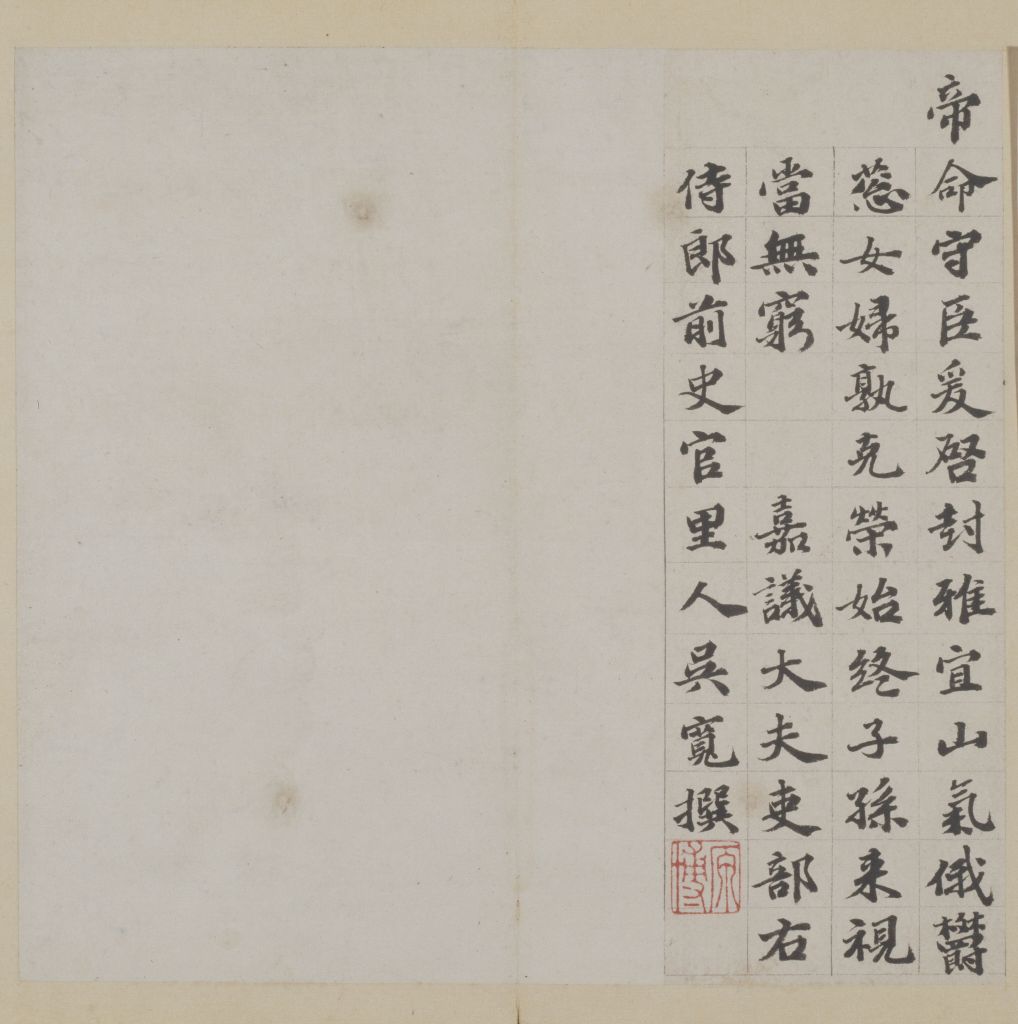 帝命守臣爰啓封雅宜山氣俄鬱
葱女婦孰克榮始終子孫来視
當無窮　嘉議大夫吏部右
侍郎前史官里人吳寬撰
原博